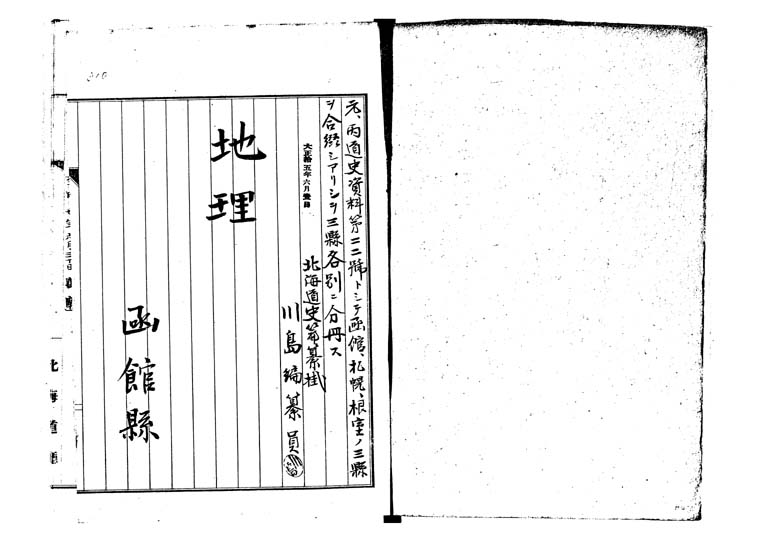 元、丙道史資料第二二號トシテ函館、札幌、根室ノ三縣
ヲ合綴シアリシヲ三縣各別ニ分冊ス
大正拾五年六月壹日
北海道史編纂掛
川島編纂員
地理
函館縣
北海道廳